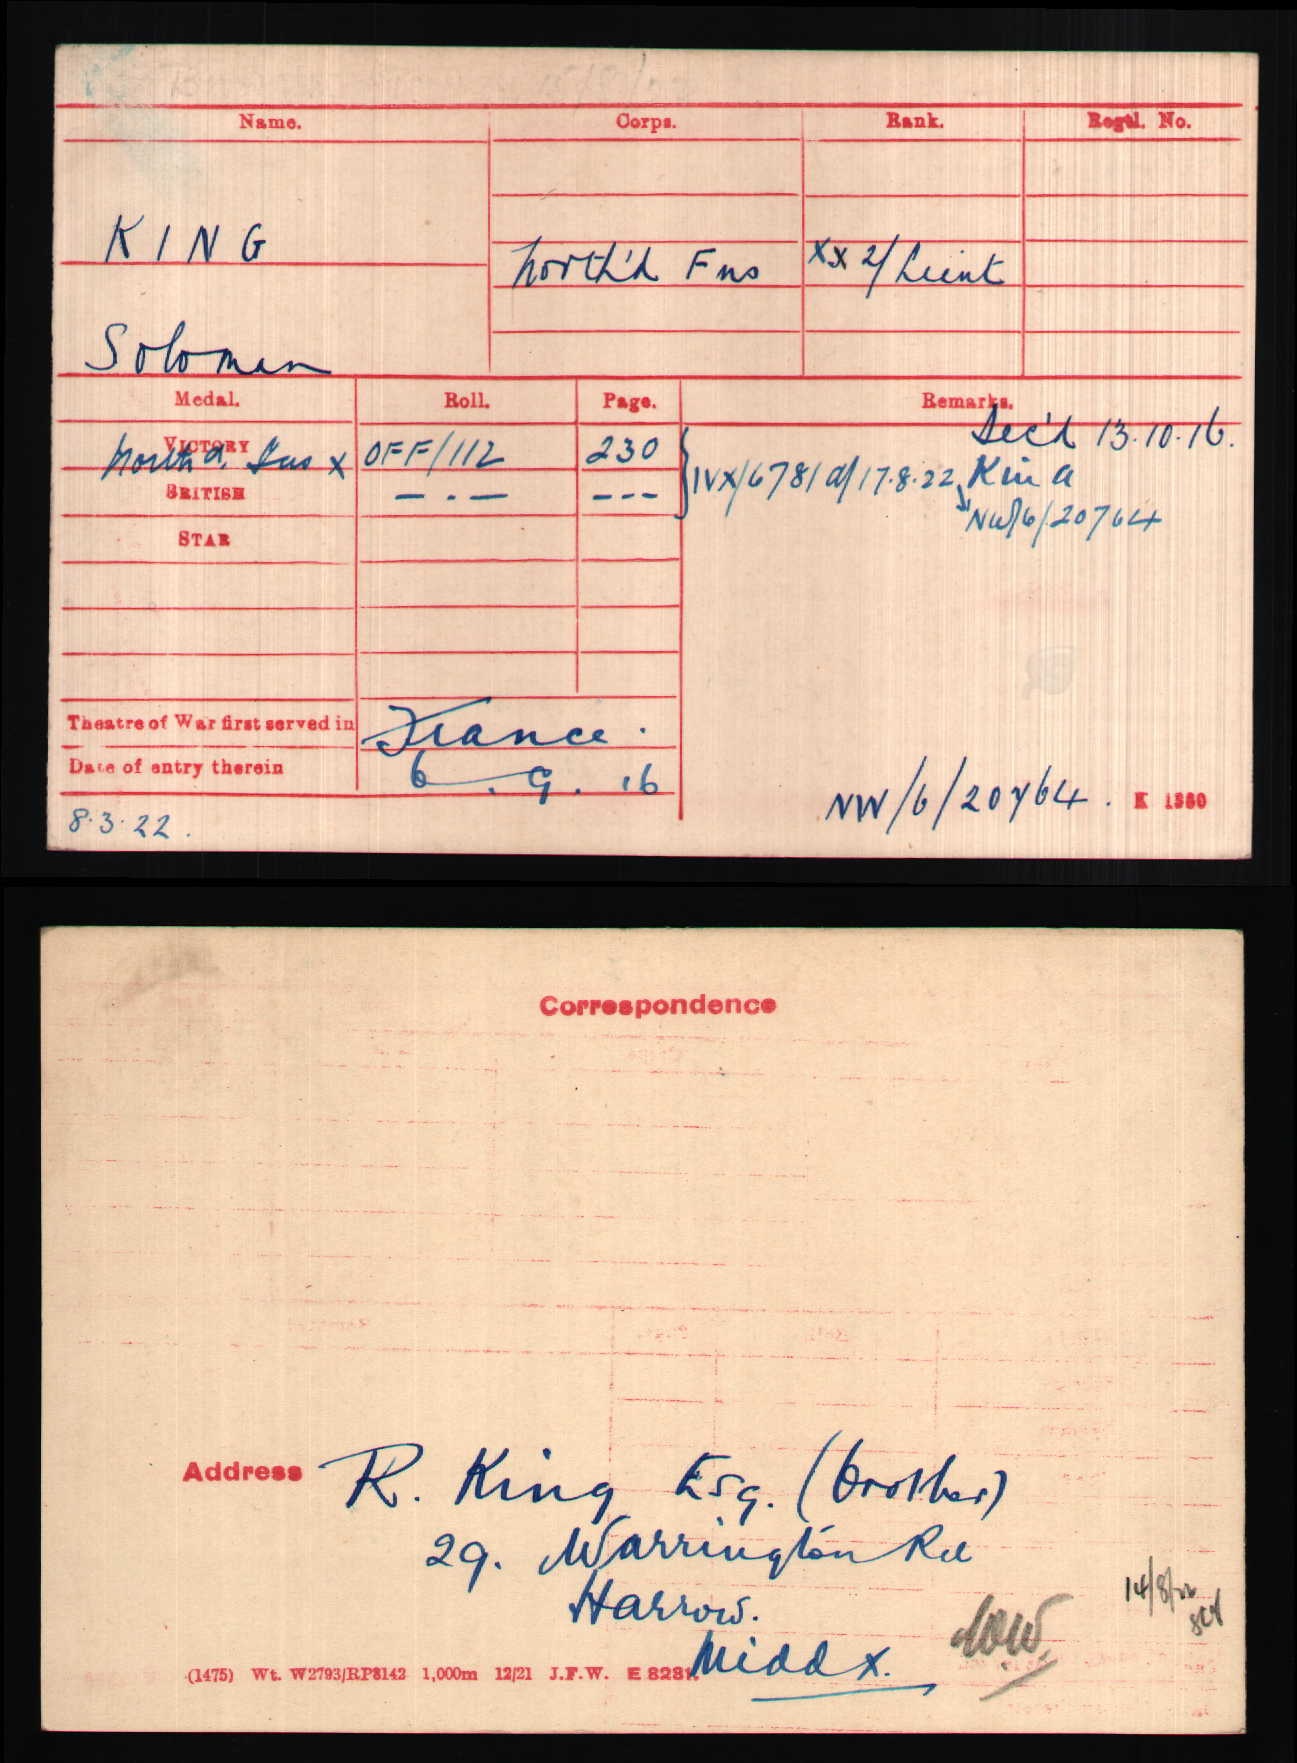 Name. Corps. Rank. Regtl. No.
KING
North'd Fus XX 2/Lieut
Soloman
Medal. Roll. Page. Remarks.
Dec'd 13.10.16.
VICTORY North'd. Fus X OFF/112 230
IVX/6781 d/17.8.22 K in a
BRITISH — . — - - -
NW/6/20764
STAR
Theatre of War first served in France.
Date of entry therein 6 . 9 . 16
NW/6/20764. K 1380
8.3.22.
Correspondence
Address R. King Esq. (brother)
29. Warrington Rd
Harrow.
14/8/22
Middx.
(1475) Wt. W2793/RP8142 1,000m 12/21 J.F.W. E 8281.